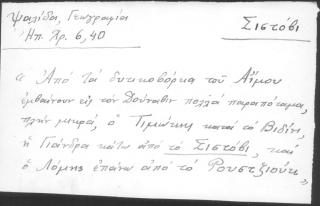 Ψαλίδα, Γεωγραφία
Ἠπ. Χρ. 6, 40
Σιστόβι
« Ἀπὸ τὰ δυτικοβόρεια τοῦ Αἵμου
ἐμβαίνουν εἰς τὸν Δούναβιν πολλὰ παραπόταμα,
πλὴν μικρά, ὁ Τιμώκης κατὰ τὸ Βιδίνι,
ἡ Γιάντρα κάτω ἀπὸ τὸ Σιστόβι, καὶ
ὁ Λόμης ἐπάνω ἀπὸ τὸ Ρουστζιούκι »